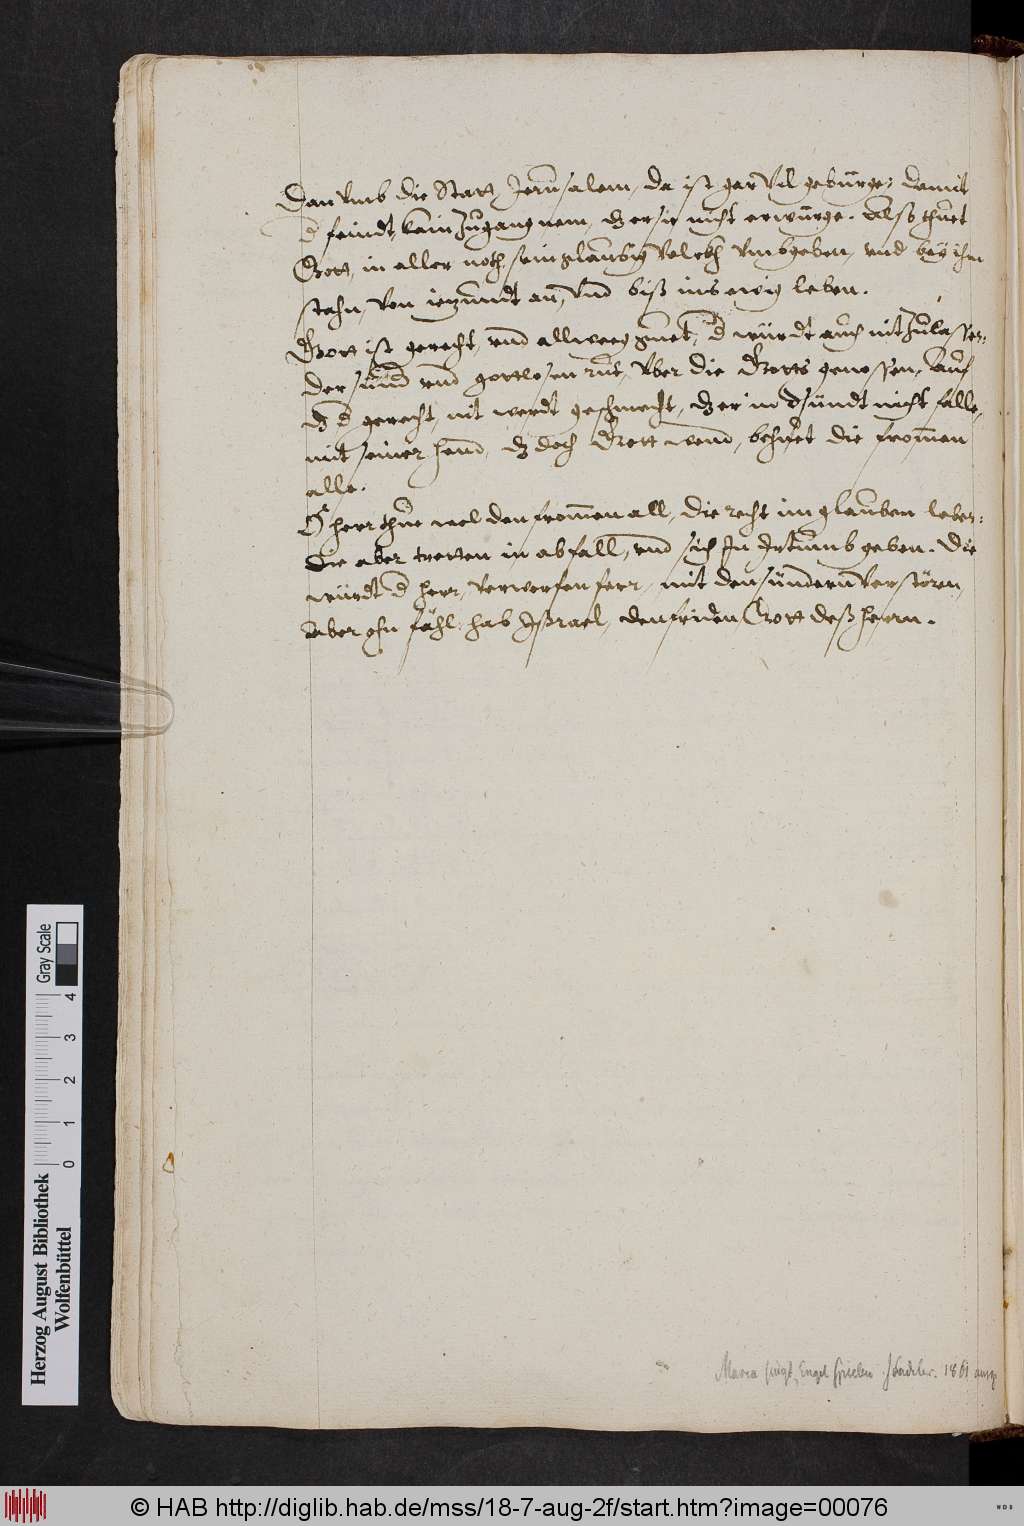 Dan vmb die Statt Jerusalem, da ist gar vil gebürge: damit
d feindt kein Zugang nem, dz er sie nicht erwürge. Also thuet
Gott, in aller noth, sein glaubig Volckh vmbgeben, vnd bey ihm
stahn, von iezundt an, vnd biß ins ewig leben.
Gott ist gerecht, vnd allweeg guet, d würdt auch nit Zulassen:
der sünd vnd gottlosen rut, vber die Gotts genossen, Auch
dz d gerecht, nit werdt geschmecht, dz er in dsündt nicht falle,
mit seiner hand, dz doch Gott wend, behüet die fromen
alle.
O herr thue wol den fromen all, die recht im glauben leben:
die aber tretten in abfall, vnd sich In Irtumb geben. Die
würdt d herr, verwerfen ferr, mit den sündern verstören,
Aber ohn fähl: hab Jsrael, den friden Gott deß herrn.
Maria singt, Engel spielen. J Sadeler. 1861 ausg
Gray Scale
4
3
2
1
0
Herzog August Bibliothek
Wolfenbüttel
© HAB http://diglib.hab.de/mss/18-7-aug-2f/start.htm?image=00076